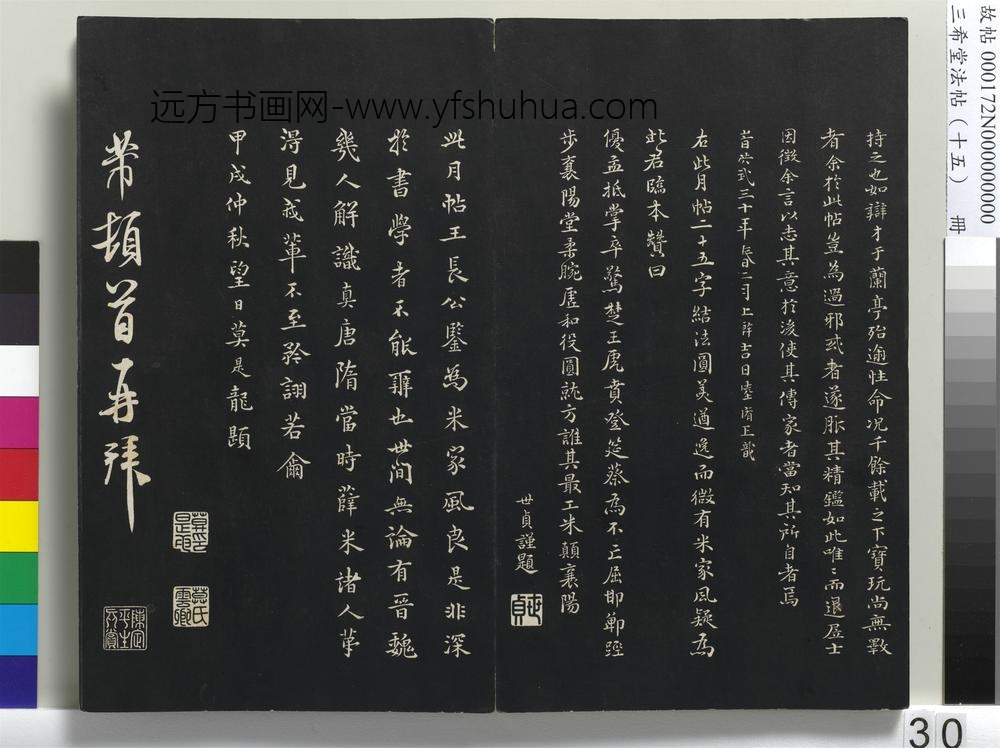 持之也如辯才于蘭亭殆逾性命况千餘載之下寶玩尚無斁
者余於此帖豈為過邪或者遂服其精鑑如此唯唯而退屋士
因徵余言以志其意於後使其傳家者當知其所自者焉
洪武三十年春二月上澣吉日
右此月帖二十五字結法圓美遒逸而微有米家風疑為
此君臨本贊曰
優孟抵掌卒驚楚王虎賁登筵蔡為不亡屈邯鄲蹈
步襄陽堂柔腕虛和役圓就方誰其最工米顛襄陽
世貞謹題
此月帖王長公鑒為米家風良是非深
於書學者不能辯也世間無論有晉魏
幾人解識真唐隋當時薛米諸人苐
得見我輩不至矜詡若爾
甲戌仲秋望日莫是龍題
芾頓首再拜
莫氏雲卿
陳定平生真賞
远方书画网-www.yfshuhua.com
故帖 000172N000000000
三希堂法帖（十五） 冊
30